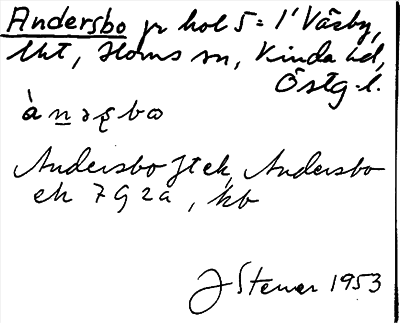 Andersbo pr hol 5= 1' Väsby,
Uht, Horns sn, Kinda hd,
Östg. l.
à n ə ʂ b ω
Andersbo Jt ek, Andersbo
ek 7 G 2a, kb
J Stener 1953